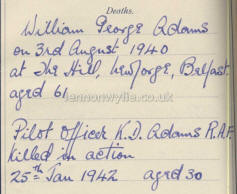 Deaths.
William George Adams
on 3rd August 1940
at The Hill, Newforge, Belfast
aged 61
lennonwylie.co.uk
Pilot Officer K.D. Adams R.A.F.
killed in action
25th Jan 1942 aged 30